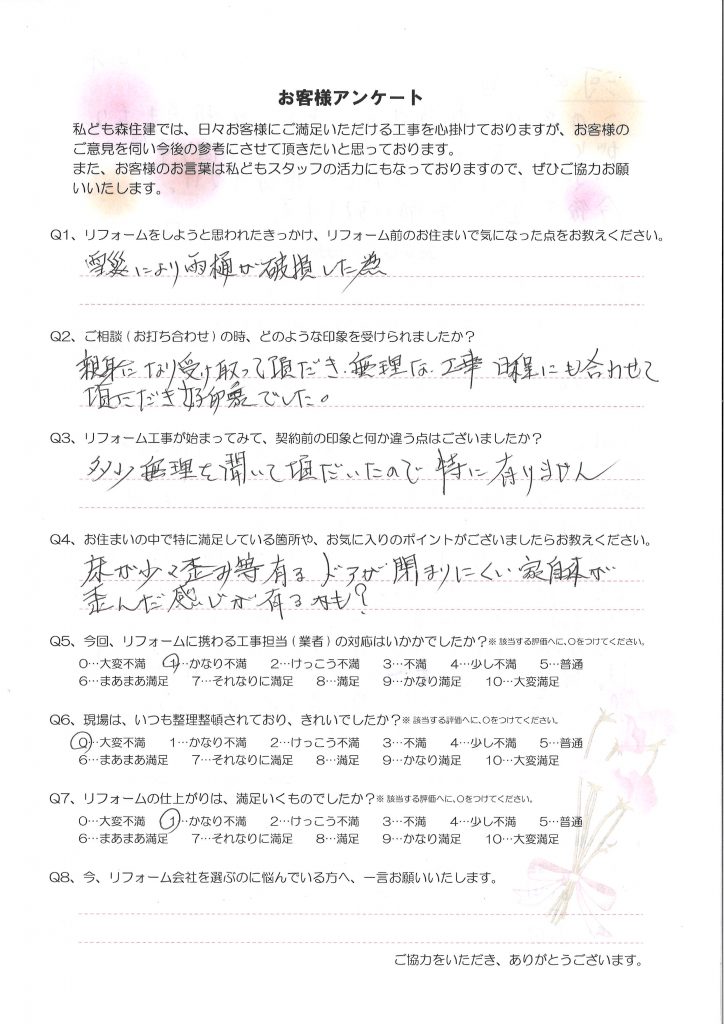 お客様アンケート
私ども森住建では、日々お客様にご満足いただける工事を心掛けておりますが、お客様の
ご意見を伺い今後の参考にさせて頂きたいと思っております。
また、お客様のお言葉は私どもスタッフの活力にもなっておりますので、ぜひご協力お願
いいたします。
Q1、リフォームをしようと思われたきっかけ、リフォーム前のお住まいで気になった点をお教えください。
雪災により雨樋が破損した為
Q2、ご相談(お打ち合わせ)の時、どのような印象を受けられましたか？
親身になり受け取って頂だき、無理な工事日程にも合わせて
頂ただき好印象でした。
Q3、リフォーム工事が始まってみて、契約前の印象と何か違う点はございましたか？
多少無理を聞いて頂だいたので 特に有りません
Q4、お住まいの中で特に満足している箇所や、お気に入りのポイントがございましたらお教えください。
床が少々歪み等有る ドアが閉まりにくい 家自体が
歪んだ感じが有るかも？
Q5、今回、リフォームに携わる工事担当(業者)の対応はいかかでしたか？※該当する評価へに、○をつけてください。
0…大変不満 1…かなり不満 2…けっこう不満 3…不満 4…少し不満 5…普通
6…まあまあ満足 7…それなりに満足 8…満足 9…かなり満足 10…大変満足
Q6、現場は、いつも整理整頓されており、きれいでしたか？※該当する評価へに、○をつけてください。
0…大変不満 1…かなり不満 2…けっこう不満 3…不満 4…少し不満 5…普通
6…まあまあ満足 7…それなりに満足 8…満足 9…かなり満足 10…大変満足
Q7、リフォームの仕上がりは、満足いくものでしたか？※該当する評価へに、○をつけてください。
0…大変不満 1…かなり不満 2…けっこう不満 3…不満 4…少し不満 5…普通
6…まあまあ満足 7…それなりに満足 8…満足 9…かなり満足 10…大変満足
Q8、今、リフォーム会社を選ぶのに悩んでいる方へ、一言お願いいたします。
ご協力をいただき、ありがとうございます。